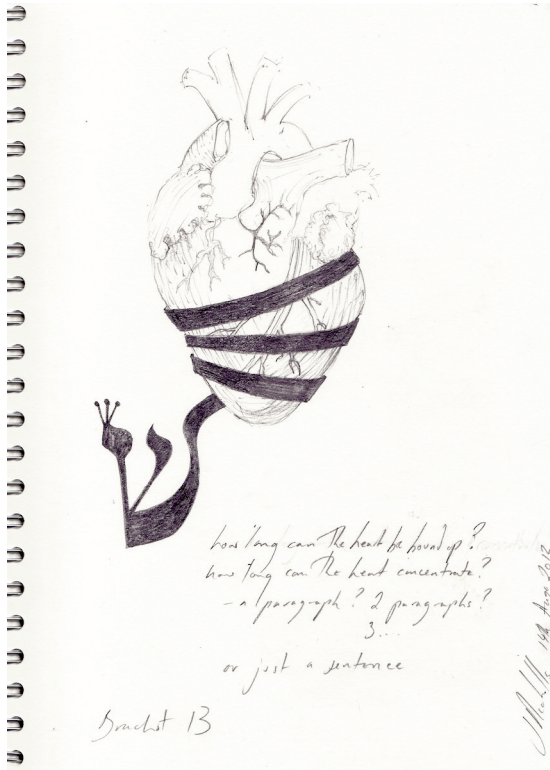 ש
how long can the heart be bound up?
how long can the heart concentrate?
- a paragraph? 2 paragraphs?
3...
or just a sentence
Brachot 13
14th Aug 2012